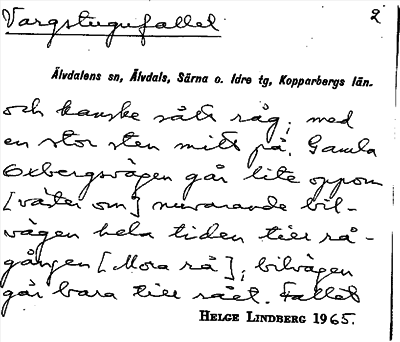 Vargstugufallet 2
Älvdalens sn, Älvdals, Särna o. Idre tg, Kopparbergs län.
och kanske sått råg; med
en stor sten mitt på. Gamla
Oxbergsvägen går lite oppom
[väster om] nuvarande bil-
vägen hela tiden till rå-
gången [Mora rå]; bilvägen
går bara till rået. Fallet
HELGE LINDBERG 1965.